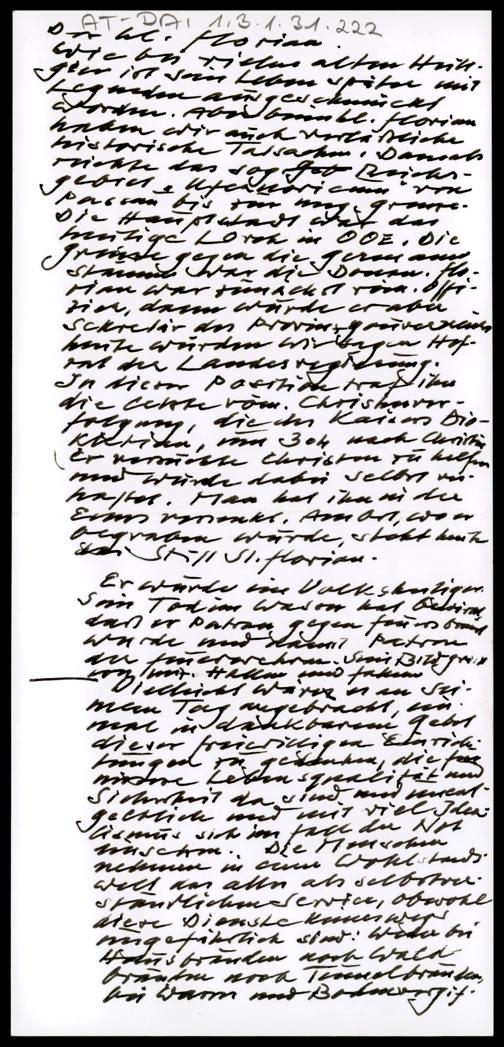 AT-DAI 1.3.1.31.222
Der hl. Florian.
Wie bei vielen alten Heili-
gen ist sein Leben später mit
Legenden ausgeschmückt
worden. Aber beim hl. Florian
haben wir auch verläßliche
historische Tatsachen. Damals
reichte das sog. Reichs-
gebiet von
Passau bis zur ung. Grenze.
Die Hauptstadt war das
heutige Lorch in OOE. Die
Grenze gegen die Germanen
stämme war die Donau. Flo-
rian war zunächst röm. Offi-
zier, dann wurde er aber
Sekretär des Provinzgouverneurs
heute würden wir sagen Hof-
rat der Landesregierung.
In dieser Position traf ihn
die letzte röm. Christenver-
folgung, die des Kaisers Dio-
kletian, um 304 nach Christus
Er versuchte Christen zu helfen
und wurde dabei selbst ver-
haftet. Man hat ihn in der
Enns versenkt. Am Ort, wo er
begraben wurde, steht heute
das Stift St. Florian.
Er wurde ein Volksheiliger.
Sein Tod im Wasser hat bewirkt
daß er Patron gegen Feuersbrunst
wurde und damit Patron
der Feuerwehren. Sein Bild
Hallen und Fahnen
Vielleicht wäre es an sei-
nem Tag angebracht, ein-
mal in dankbarem Gebet
dieser freiwilligen Einrich-
tungen zu gedenken, die für
unsere Lebensqualität und
Sicherheit da sind und unent-
geltlich und mit viel Idea-
lismus sich im Fall der Not
einsetzen. Die Menschen
nehmen in einer Wohlstands-
welt das alles als selbstver-
ständlichen Service, obwohl
diese Dienste keineswegs
ungefährlich sind: Weder bei
Hausbränden noch Wald-
bränden noch Tunnelbränden,
bei Wasser und